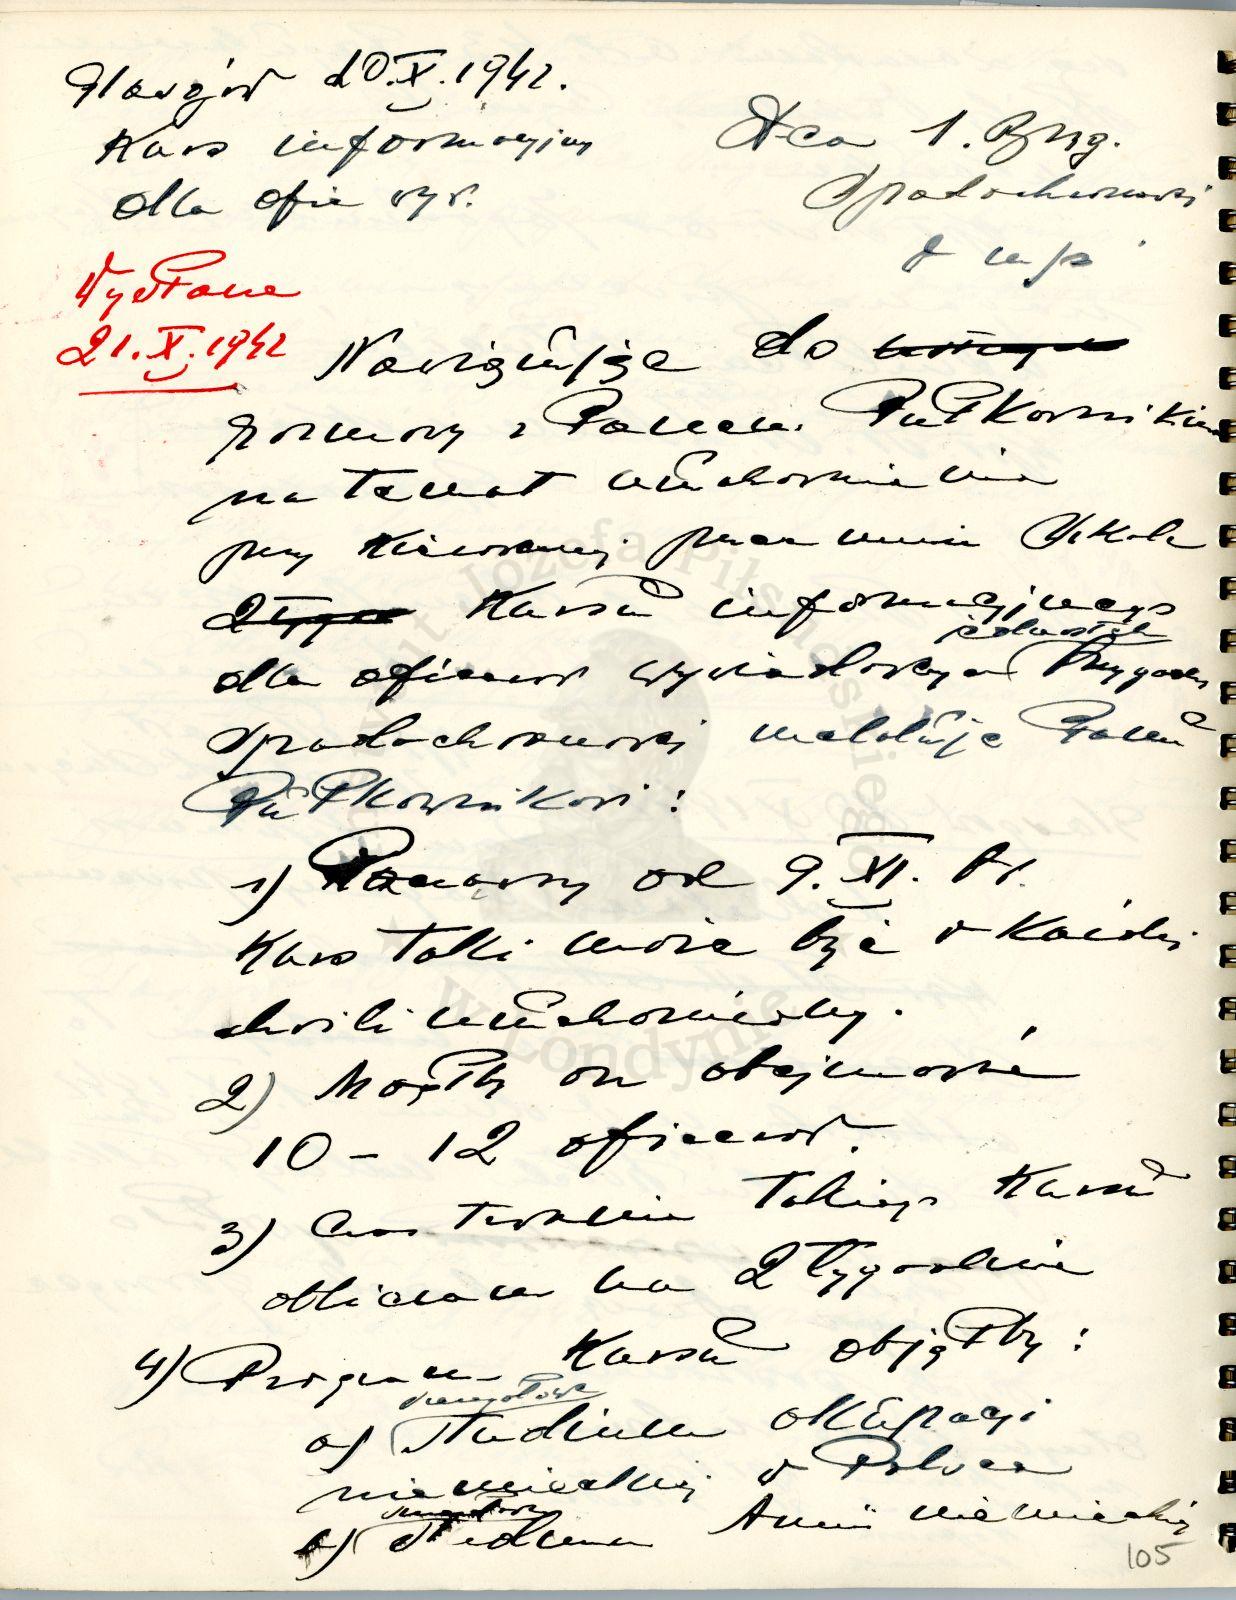 Glasgów 20.X.1942.
Kurs informacyjny
dla ofic wyw.
D-ca 1. Bryg.
Spadochronowej
w m/p
Wysłane
21.X.1942
Nawiązując do
rozmowy z Panem Pułkownikiem
na temat uruchomienia
przy kierowanej przeze mnie Szkole
Kursu informacyjnego
dla oficerów wywiadowczych Brygady
Spadochronowej melduję Panu
Pułkownikowi:
1) Począwszy od 9.XI. br.
Kurs taki może być w każdej
chwili uruchomiony.
2) Mógłby on obejmować
10 – 12 oficerów.
3) Czas trwania takiego Kursu
obliczam na 2 tygodnie
4) Program Kursu objąłby:
szczegółowe
a) Studium okupacji
niemieckiej w Polsce
b) Studium Armii niemieckiej
105
Instytut Józefa Piłsudskiego
w Londynie